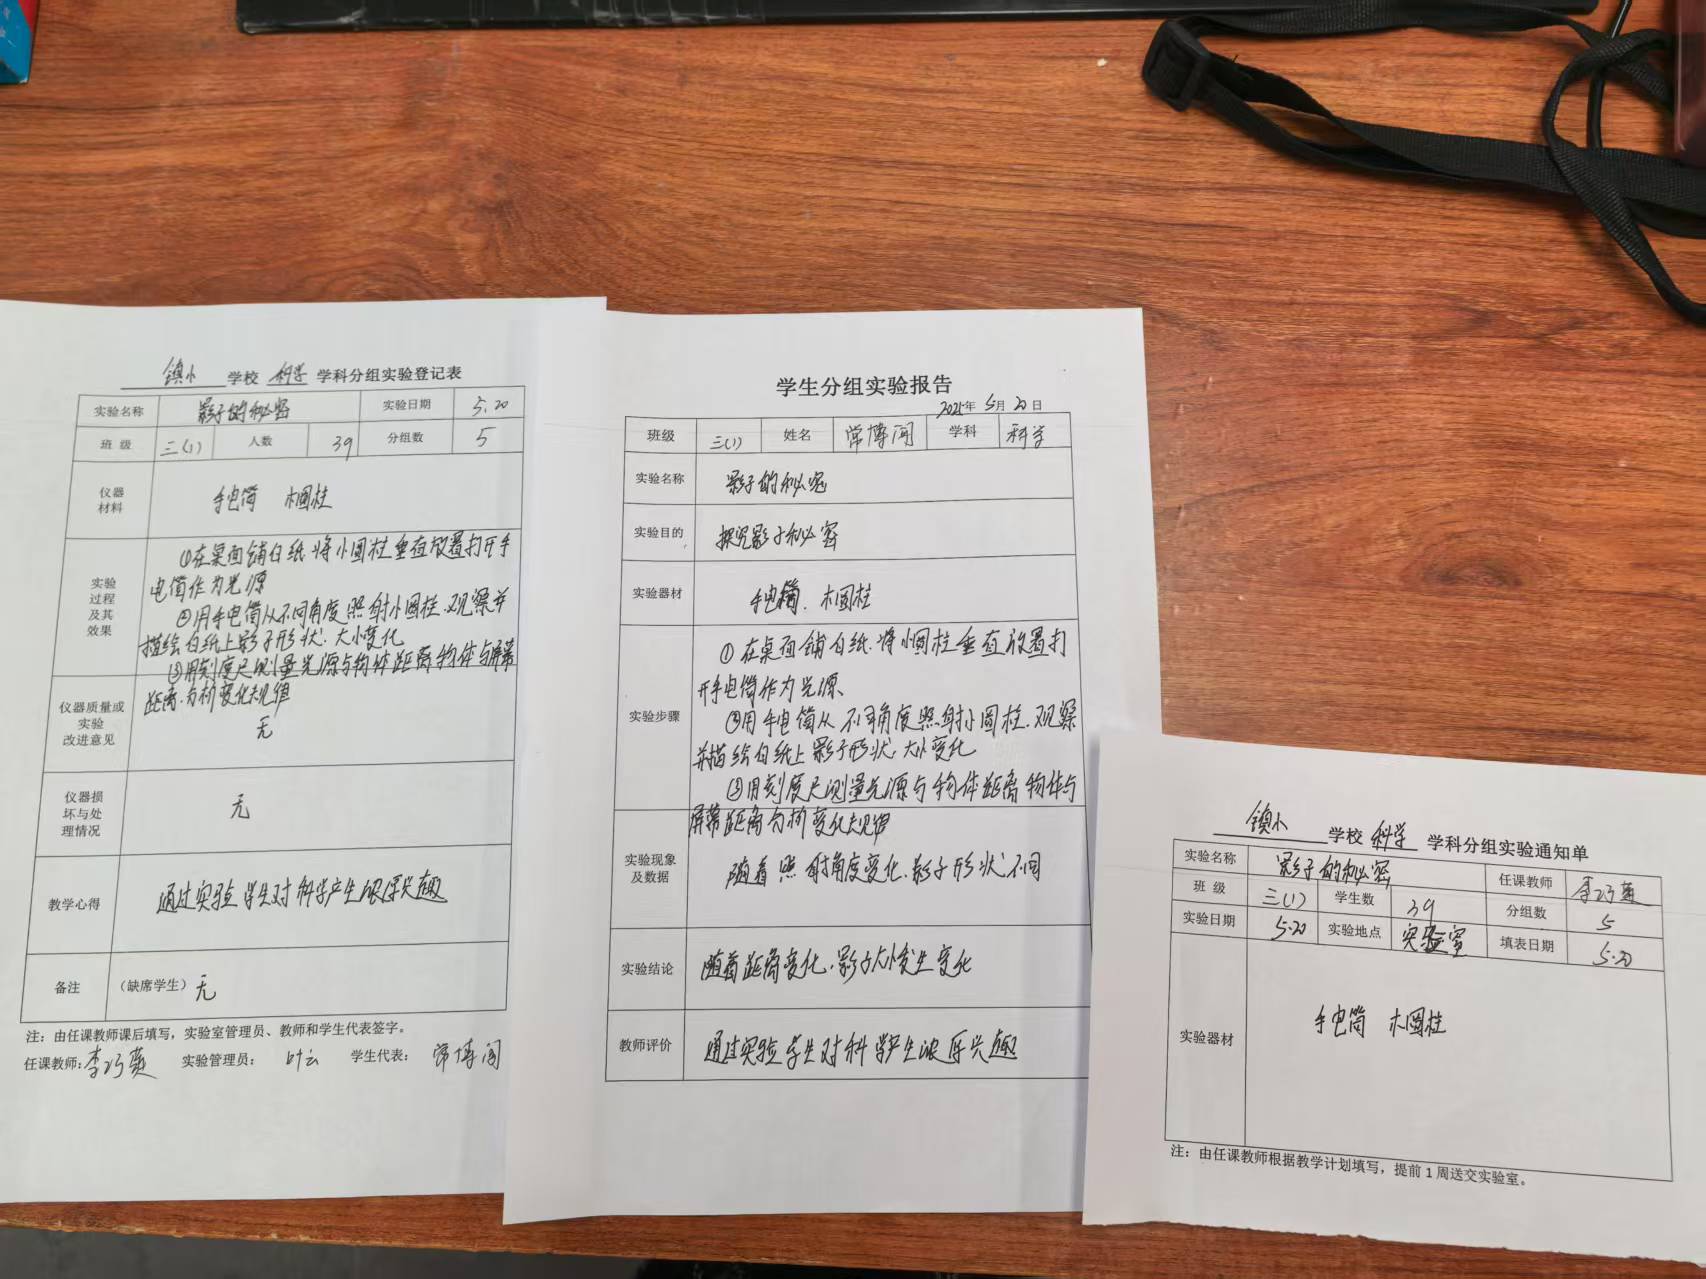 镇小 学校 科学 学科分组实验登记表
实验名称 影子的秘密 实验日期 5.20
班 级 三(1) 人数 39 分组数 5
仪器
材料
手电筒 木圆柱
实验
过程
及其
效果
①在桌面铺白纸.将小圆柱垂直放置打开手
电筒作为光源
②用手电筒从不同角度照射小圆柱.观察并
描绘白纸上影子形状.大小变化
③用刻度尺测量光源与物体距离物体与屏幕
距离.分析变化规律
仪器质量或
实验
改进意见
无
仪器损
坏与处
理情况
无
教学心得 通过实验学生对科学产生浓厚兴趣
备注 (缺席学生) 无
注：由任课教师课后填写，实验室管理员、教师和学生代表签字。
任课教师: 李巧莲 实验管理员： 叶云 学生代表： 常博闻
学生分组实验报告
2025年 5月 20日
班级 三(1) 姓名 常博闻 学科 科学
实验名称 影子的秘密
实验目的 探究影子秘密
实验器材 手电筒. 木圆柱
实验步骤
① 在桌面铺白纸.将小圆柱垂直放置打
开手电筒作为光源、
②用手电筒从不同角度照射小圆柱.观察
并描绘白纸上影子形状.大小变化
③用刻度尺测量光源与物体距离物体与
屏幕距离分析变化规律
实验现象
及数据
随着照射角度变化.影子形状不同
实验结论 随着距离变化.影子大小发生变化
教师评价 通过实验学生对科学产生浓厚兴趣
镇小 学校 科学 学科分组实验通知单
实验名称 影子的秘密 任课教师 李巧莲
班 级 三(1) 学生数 39 分组数 5
实验日期 5.20 实验地点 实验室 填表日期 5.20
实验器材 手电筒 木圆柱
注：由任课教师根据教学计划填写，提前 1 周送交实验室。